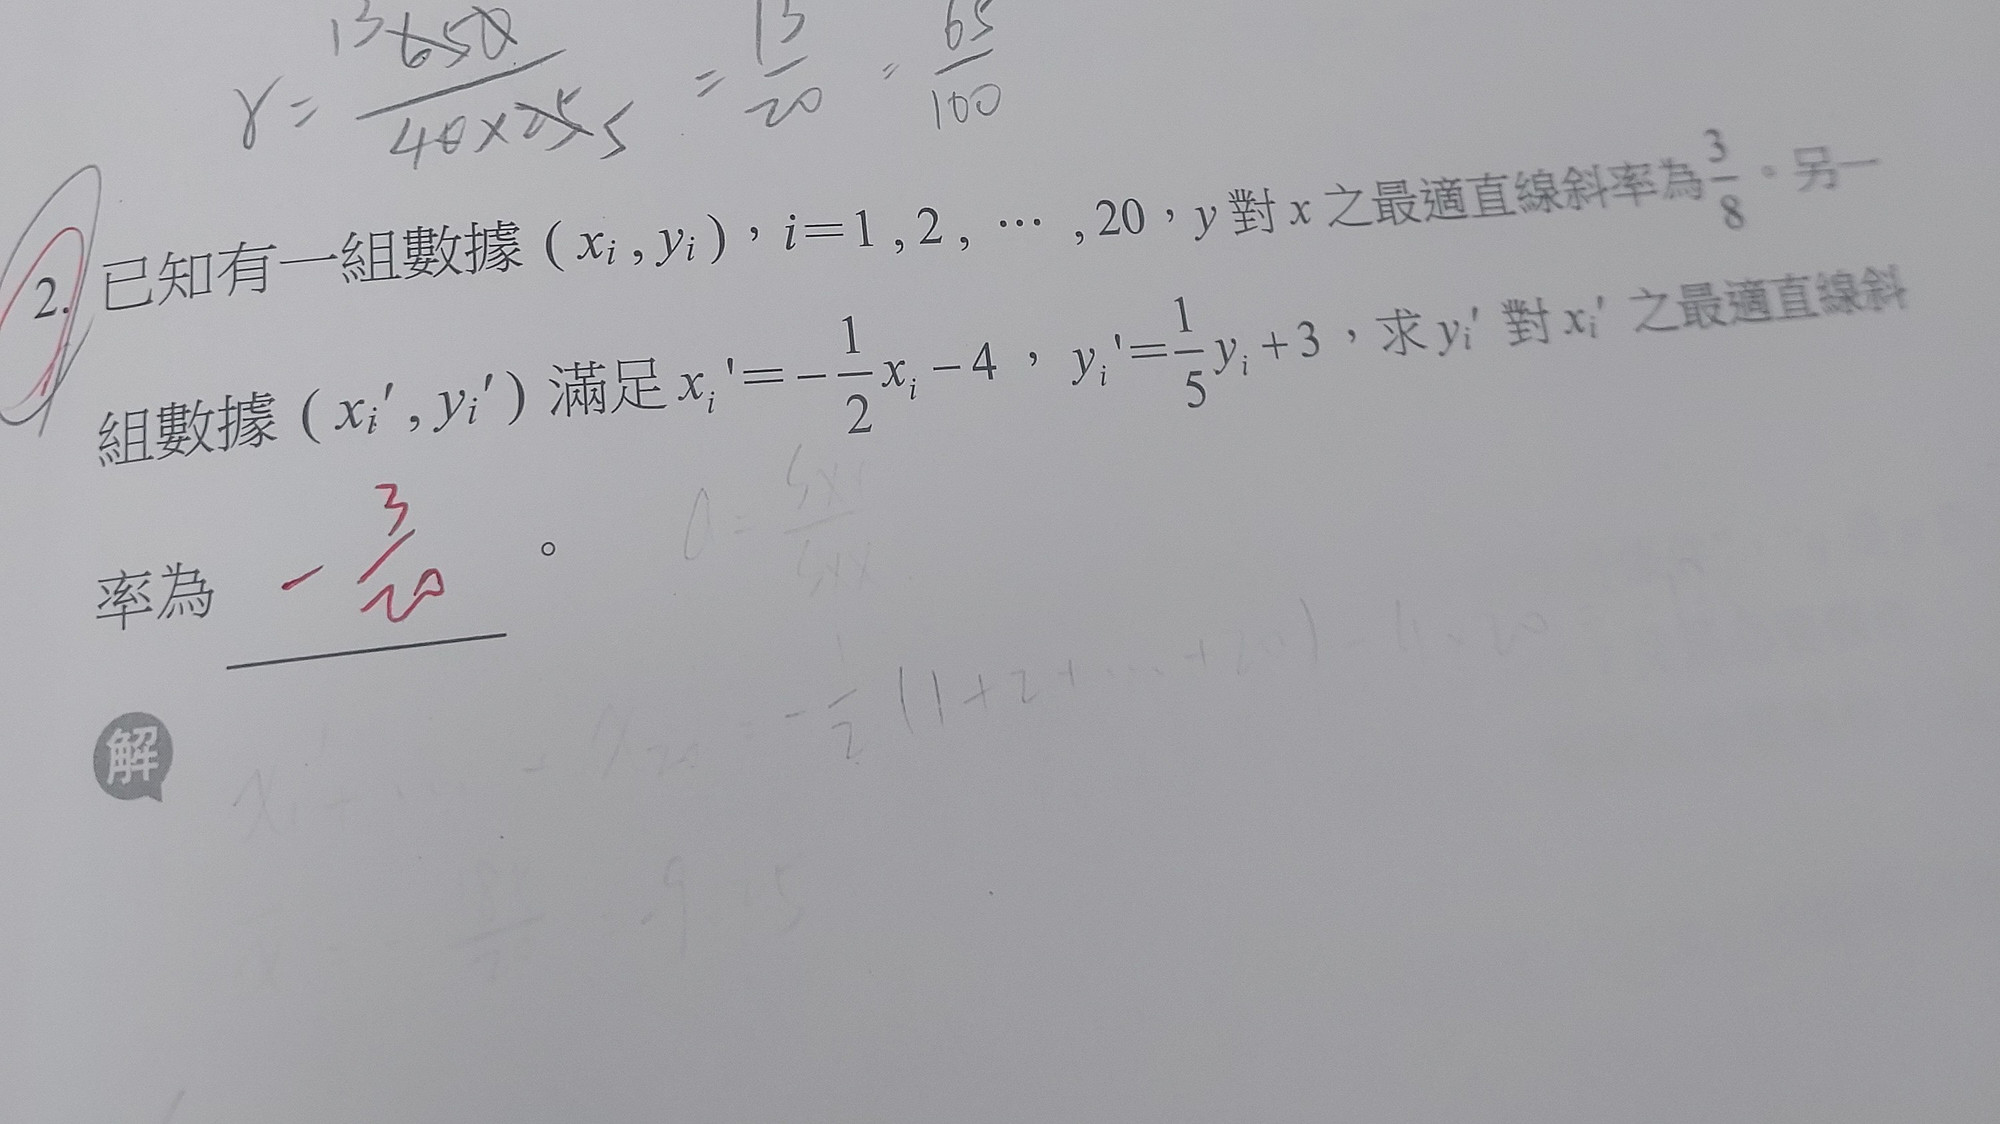 γ = 13 650 / 40×25 5 = 13/20 = 65/100
2. 已知有一組數據 ( xᵢ , yᵢ ) ， i=1 , 2 , … , 20 ， y 對 x 之最適直線斜率為 3/8 。另一
組數據 ( xᵢ′ , yᵢ′ ) 滿足 xᵢ′=−1/2 xᵢ−4 ， yᵢ′=1/5 yᵢ+3 ，求 yᵢ′ 對 xᵢ′ 之最適直線斜
率為 −3/20 。
解